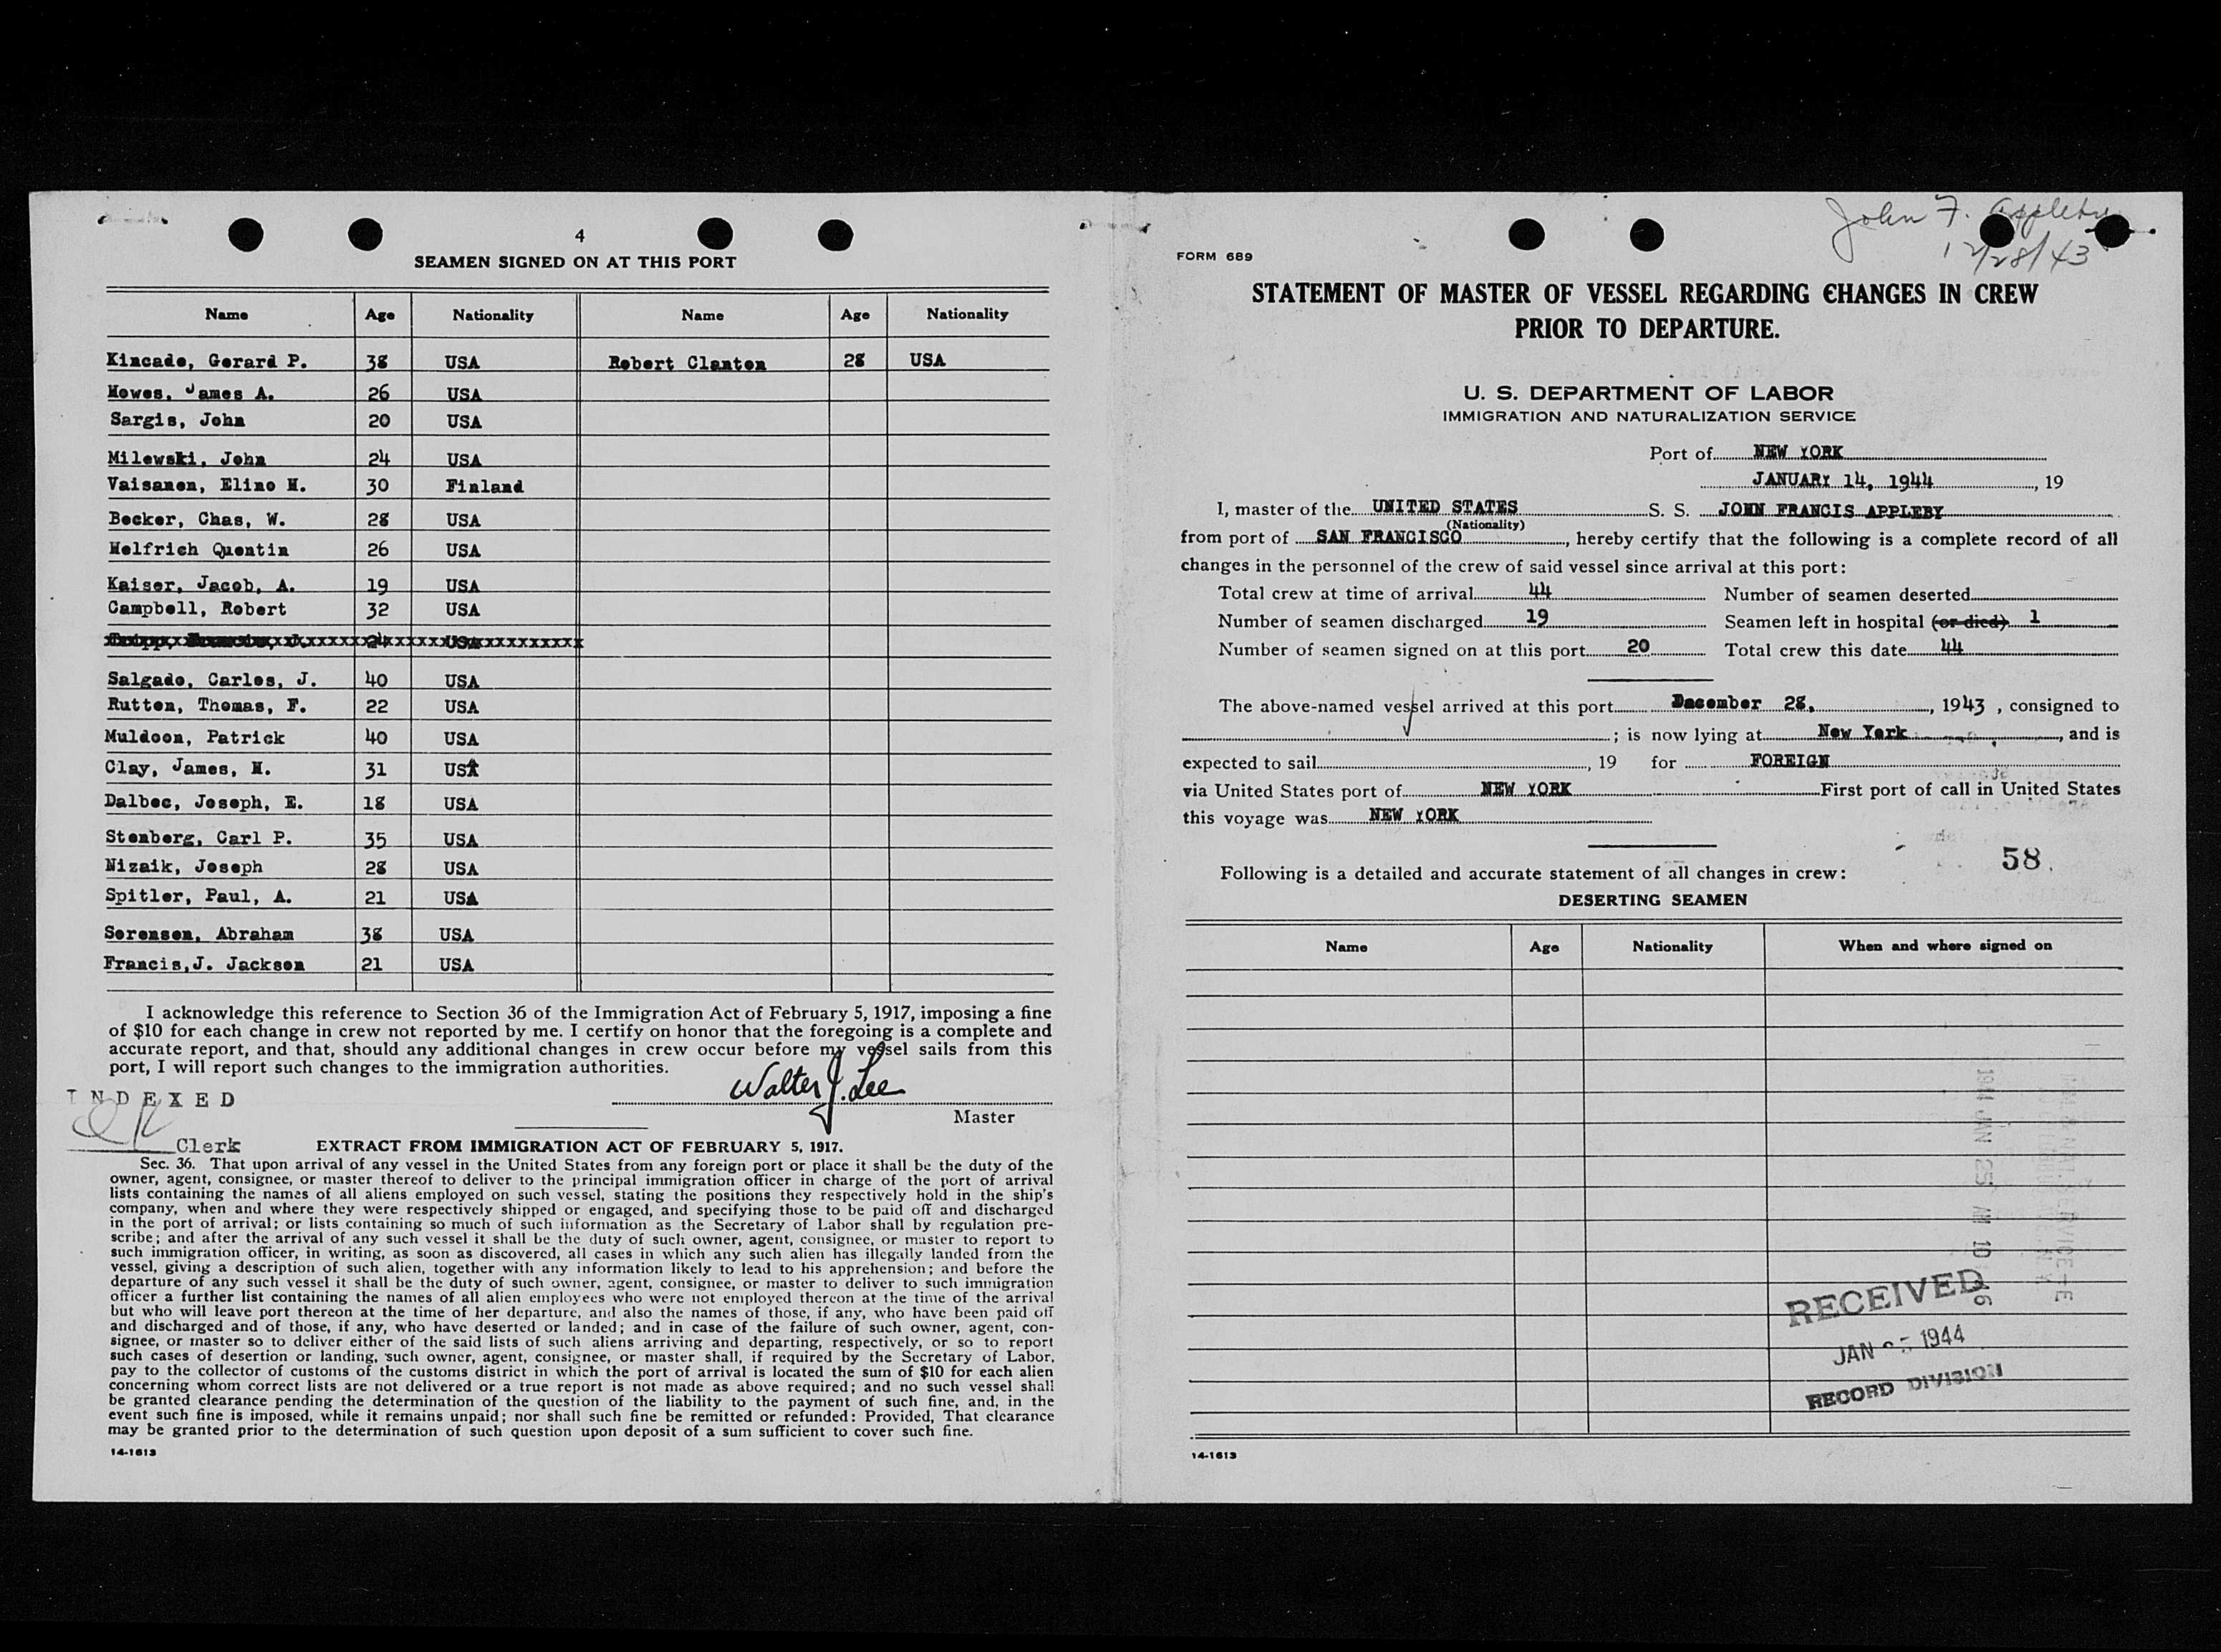 4
SEAMEN SIGNED ON AT THIS PORT
Name Age Nationality Name Age Nationality
Kincade, Gerard P. 38 USA Robert Clanton 28 USA
Howes, James A. 26 USA
Sargis, John 20 USA
Milewski, John 24 USA
Vaisanen, Elino H. 30 Finland
Becker, Chas, W. 28 USA
Helfrich Quentin 26 USA
Kaiser, Jacob, A. 19 USA
Campbell, Robert 32 USA
24 USA
Salgado, Carlos, J. 40 USA
Rutten, Thomas, F. 22 USA
Muldoon, Patrick 40 USA
Clay, James, H. 31 USA
Dalbec, Joseph, E. 18 USA
Stenberg, Carl P. 35 USA
Nizaik, Joseph 28 USA
Spitler, Paul, A. 21 USA
Sorensen, Abraham 38 USA
Francis,J. Jackson 21 USA
I acknowledge this reference to Section 36 of the Immigration Act of February 5, 1917, imposing a fine
of $10 for each change in crew not reported by me. I certify on honor that the foregoing is a complete and
accurate report, and that, should any additional changes in crew occur before my vessel sails from this
port, I will report such changes to the immigration authorities.
Walter J. Lee
Master
INDEXED
Clerk
EXTRACT FROM IMMIGRATION ACT OF FEBRUARY 5, 1917.
Sec. 36. That upon arrival of any vessel in the United States from any foreign port or place it shall be the duty of the
owner, agent, consignee, or master thereof to deliver to the principal immigration officer in charge of the port of arrival
lists containing the names of all aliens employed on such vessel, stating the positions they respectively hold in the ship's
company, when and where they were respectively shipped or engaged, and specifying those to be paid off and discharged
in the port of arrival; or lists containing so much of such information as the Secretary of Labor shall by regulation pre-
scribe; and after the arrival of any such vessel it shall be the duty of such owner, agent, consignee, or master to report to
such immigration officer, in writing, as soon as discovered, all cases in which any such alien has illegally landed from the
vessel, giving a description of such alien, together with any information likely to lead to his apprehension; and before the
departure of any such vessel it shall be the duty of such owner, agent, consignee, or master to deliver to such immigration
officer a further list containing the names of all alien employees who were not employed thereon at the time of the arrival
but who will leave port thereon at the time of her departure, and also the names of those, if any, who have been paid off
and discharged and of those, if any, who have deserted or landed; and in case of the failure of such owner, agent, con-
signee, or master so to deliver either of the said lists of such aliens arriving and departing, respectively, or so to report
such cases of desertion or landing, such owner, agent, consignee, or master shall, if required by the Secretary of Labor,
pay to the collector of customs of the customs district in which the port of arrival is located the sum of $10 for each alien
concerning whom correct lists are not delivered or a true report is not made as above required; and no such vessel shall
be granted clearance pending the determination of the question of the liability to the payment of such fine, and, in the
event such fine is imposed, while it remains unpaid; nor shall such fine be remitted or refunded: Provided, That clearance
may be granted prior to the determination of such question upon deposit of a sum sufficient to cover such fine.
14-1613
John F. Appleby
12/28/43
FORM 689
STATEMENT OF MASTER OF VESSEL REGARDING CHANGES IN CREW
PRIOR TO DEPARTURE.
U. S. DEPARTMENT OF LABOR
IMMIGRATION AND NATURALIZATION SERVICE
Port of NEW YORK
JANUARY 14, 1944, 19
I, master of the UNITED STATES S. S. JOHN FRANCIS APPLEBY
(Nationality)
from port of SAN FRANCISCO, hereby certify that the following is a complete record of all
changes in the personnel of the crew of said vessel since arrival at this port:
Total crew at time of arrival 44 Number of seamen deserted
Number of seamen discharged 19 Seamen left in hospital (or died) 1
Number of seamen signed on at this port 20 Total crew this date 44
The above-named vessel arrived at this port December 28, 1943, consigned to
; is now lying at New York, and is
expected to sail, 19 for FOREIGN
via United States port of NEW YORK First port of call in United States
this voyage was NEW YORK
58.
Following is a detailed and accurate statement of all changes in crew:
DESERTING SEAMEN
Name Age Nationality When and where signed on
1944 JAN 25 AM 10
RECEIVED
JAN 25 1944
RECORD DIVISION
14-1613